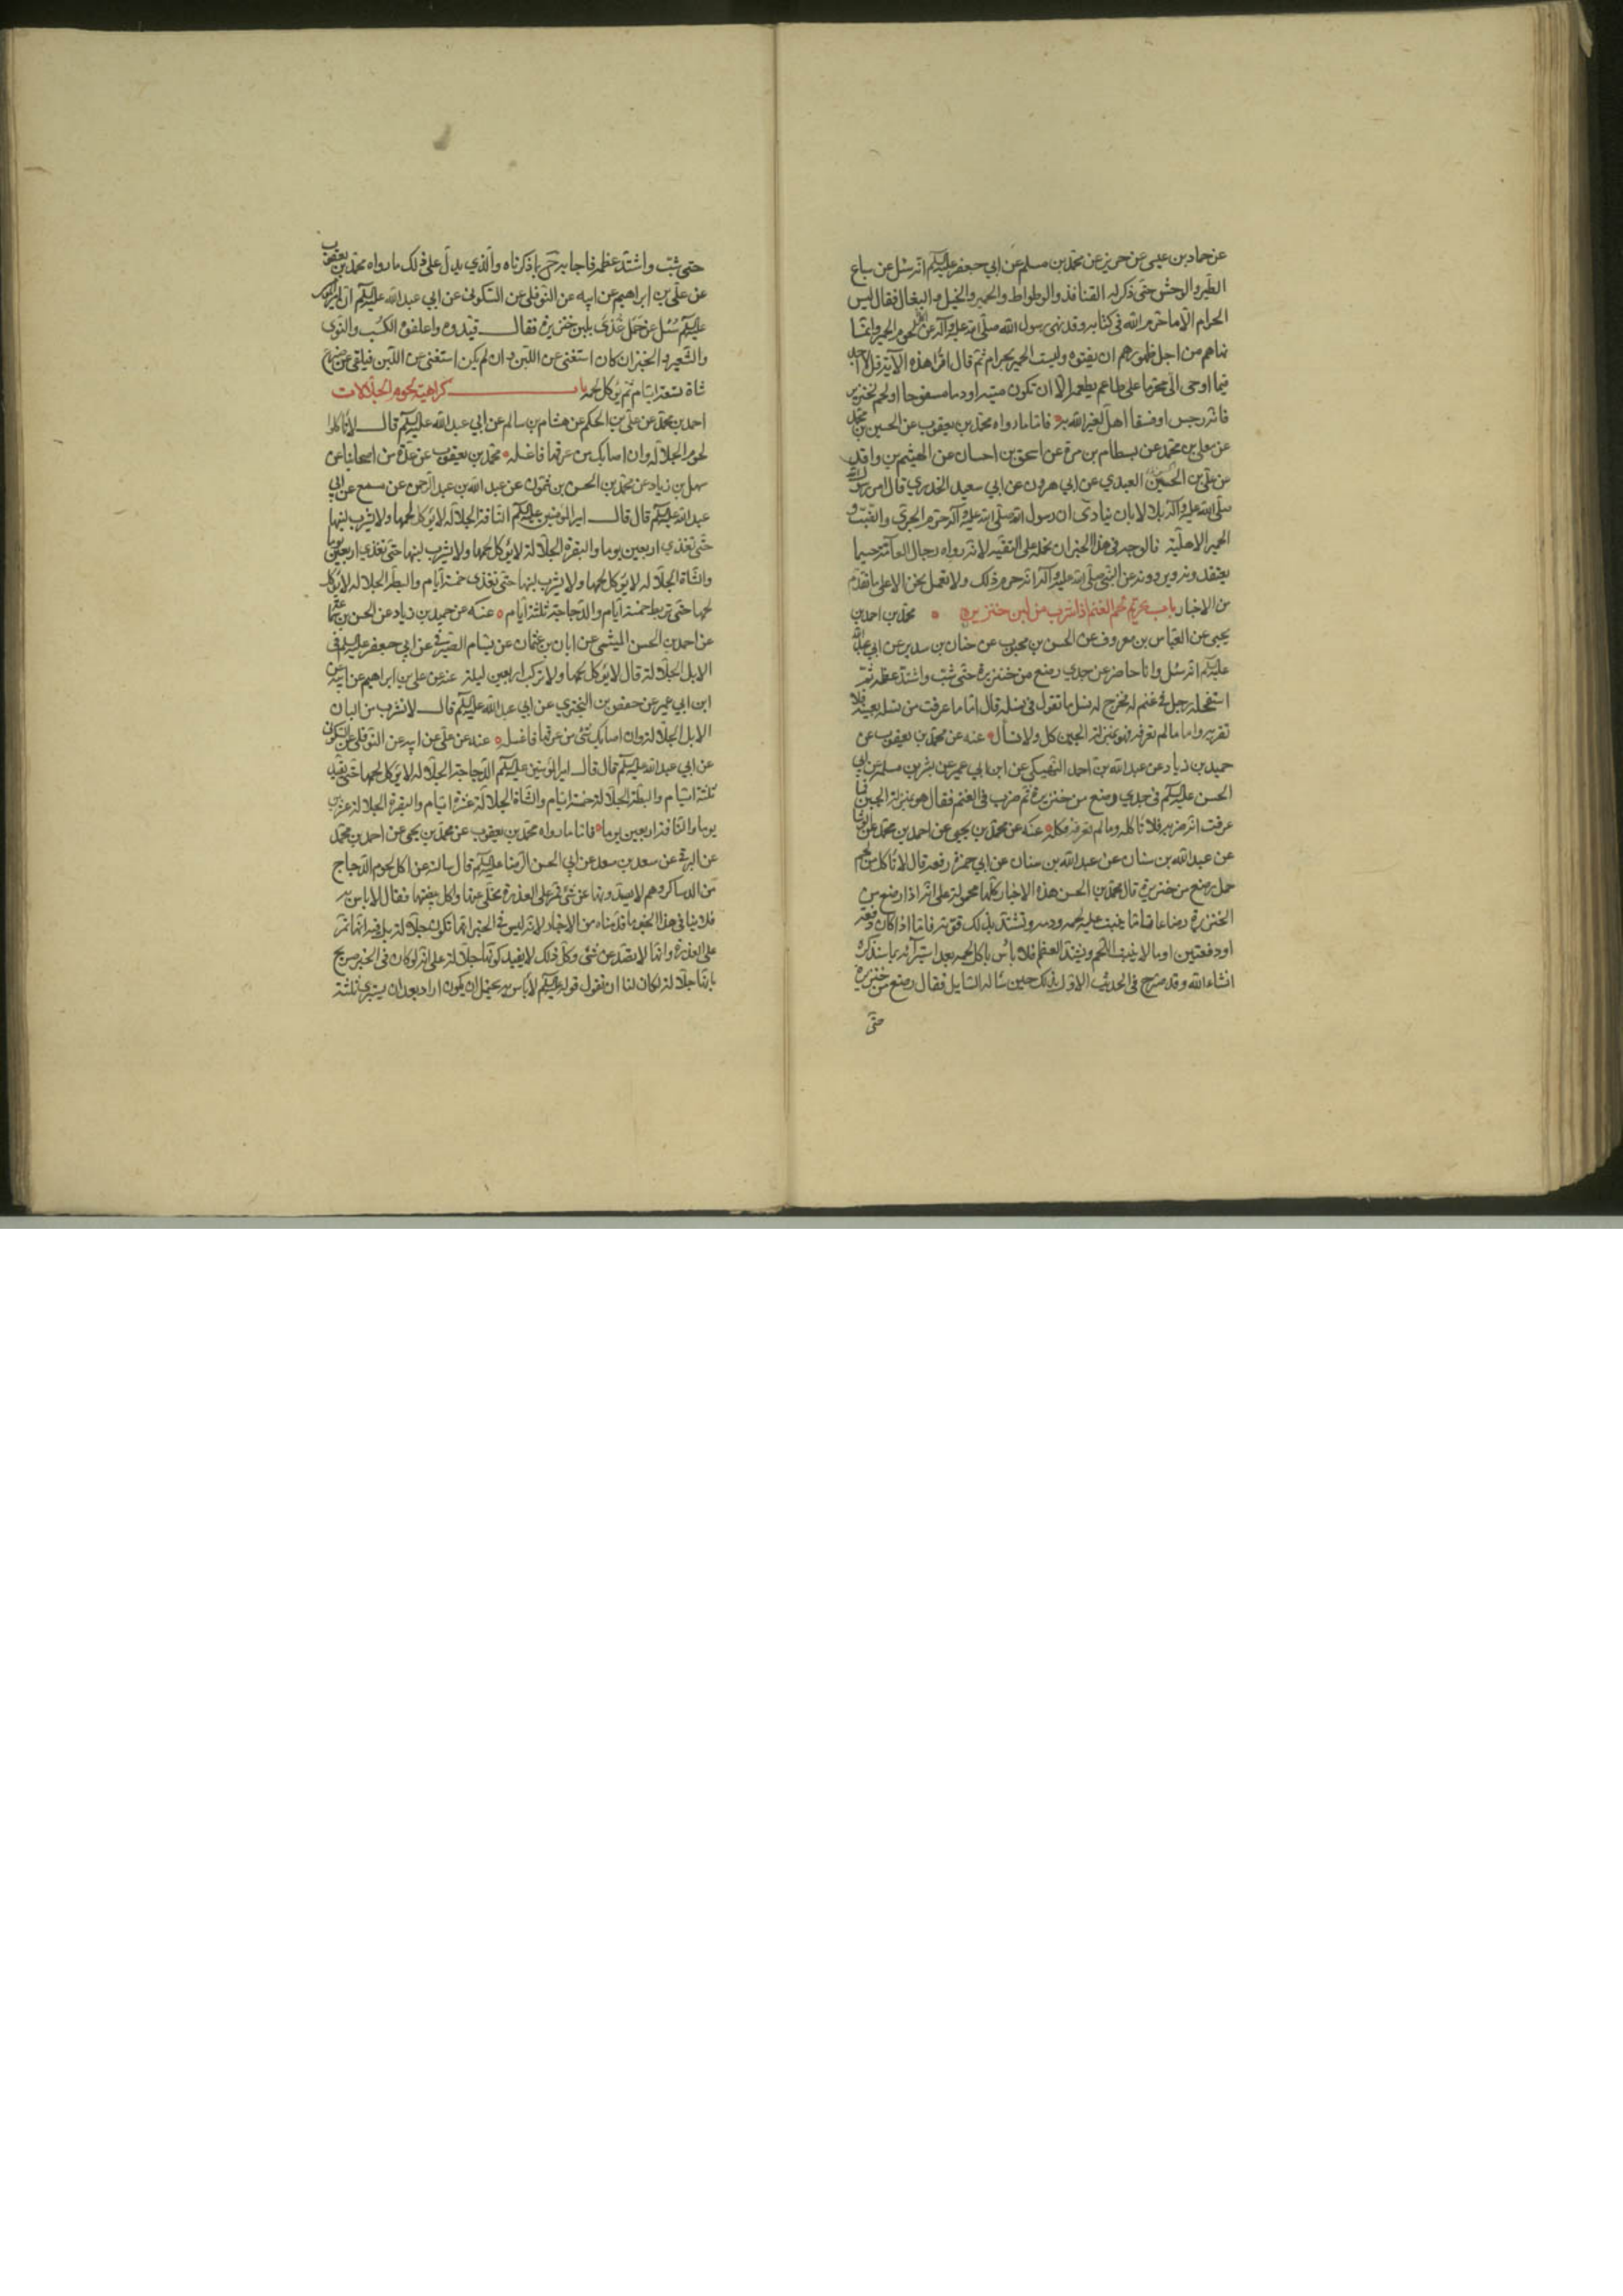 عن حماد بن عيسى عن حريز عن محمد بن مسلم عن ابي جعفر عليه السلم انه سئل عن سباع
الطير والوحش حتى ذكر له القنافذ والوطواط والحمير والخيل والبغال فقال ليس
الحرام الا ما حرم الله في كتابه وقد نهى رسول الله صلى الله عليه وآله عن لحوم الحمير وانما
نهاهم من اجل ظهورهم ان يفنوه وليست الحمير بحرام ثم قال اقرأ هذه الآية قل لا اجد
فيما اوحى الى محرما على طاعم يطعمه الا ان تكون ميتة او دما مسفوحا او لحم خنزير
فانه رجس او فسقا اهل لغير الله به فاما ما رواه محمد بن يعقوب عن الحسين بن محمد
عن معلى بن محمد عن بسطام بن مرة عن اسحق بن احسان عن الهيثم بن واقد
عن علي بن الحسين العبدي عن ابي هرون عن ابي سعيد الخدري قال امر رسول الله
صلى الله عليه وآله بلالا بان ينادي ان رسول الله صلى الله عليه وآله حرم الجرى والضب و
الحمير الاهلية فالوجه في هذا الخبر ان نحمله على التقية لانه رواه رجال العامة حسبما
يعتقدونه ويروونه عن النبي صلى الله عليه وآله انه حرم ذلك ولا نعمل نحن الا على ما تقدم
من الاخبار باب تحريم لحم الغنم اذا شرب من لبن خنزيره محمد بن احمد بن
يحيى عن العباس بن معروف عن الحسن بن محبوب عن حنان بن سدير عن ابي عبد الله
عليه السلم انه سئل وانا حاضر عن جدي رضع من خنزيرة حتى شب واشتد عظمه ثم
استفحله رجل في غنم له فخرج له نسل ما تقول في نسله قال اما ما عرفت من نسله بعينه فلا
تقربه واما ما لم تعرفه فهو بمنزلة الجبن كل ولا تسأل عنه عن محمد بن يعقوب عن
حميد بن زياد عن عبد الله بن احمد النهيكي عن ابن ابي عمير عن بشر بن مسلمة عن ابي
الحسن عليه السلم في جدي رضع من خنزيرة ثم ضرب في الغنم فقال هو بمنزلة الجبن فما
عرفت انه ضربه فلا تأكله وما لم تعرفه فكله عنه عن محمد بن يحيى عن احمد بن محمد عن الوشا
عن عبد الله بن سنان عن عبد الله بن سنان عن ابي حمزة رفعه قال لا تأكل من لحم
حمل رضع من خنزيرة قال محمد بن الحسن هذه الاخبار كلها محمولة على انه اذا رضع من
الخنزيرة رضاعا تاما ينبت عليه لحمه ودمه وتشتد بذلك قوته فاما اذا كان دفعة
او دفعتين او ما لا ينبت اللحم ويشد العظم فلا بأس باكل لحمه بعد استبرائه بما سنذكره
انشاء الله وقد صرح في الحديث الاول بذلك حين سأله السايل فقال رضع من خنزيرة
حتى
حتى شب واشتد عظمه فاجابه حينئذ بما ذكرناه والذي يدل على ذلك ما رواه محمد بن يعقوب
عن علي بن ابراهيم عن ابيه عن النوفلي عن السكوني عن ابي عبد الله عليه السلم ان امير المؤمنين
عليه السلم سئل عن حمل غذى بلبن خنزيرة فقال قيدوه واعلفوه الكسب والنوى
والشعير والخبز ان كان استغنى عن اللبن وان لم يكن استغنى عن اللبن فيلقى على ضرع
شاة سبعة ايام ثم يؤكل لحمه باب كراهية لحوم الجلالات
احمد بن محمد عن علي بن الحكم عن هشام بن سالم عن ابي عبد الله عليه السلم قال لا تأكلوا
لحوم الجلالة وان اصابك من عرقها فاغسله محمد بن يعقوب عن عدة من اصحابنا عن
سهل بن زياد عن محمد بن الحسن بن شمون عن عبد الله بن عبد الرحمن عن مسمع عن ابي
عبد الله عليه السلم قال قال امير المؤمنين عليه السلم الناقة الجلالة لا يؤكل لحمها ولا يشرب لبنها
حتى تغذي اربعين يوما والبقرة الجلالة لا يؤكل لحمها ولا يشرب لبنها حتى تغذي اربعين يوما
والشاة الجلالة لا يؤكل لحمها ولا يشرب لبنها حتى تغذى خمسة ايام والبطة الجلالة لا يؤكل
لحمها حتى تربط خمسة ايام والدجاجة ثلثة ايام عنه عن حميد بن زياد عن الحسن بن محمد
عن احمد بن الحسن الميثمي عن ابان بن عثمان عن بسام الصيرفي عن ابي جعفر عليه السلم في
الابل الجلالة قال لا يؤكل لحمها ولا تركب اربعين ليلة عنه عن علي بن ابراهيم عن ابيه عن
ابن ابي عمير عن حفص بن البختري عن ابي عبد الله عليه السلم قال لا تشرب من البان
الابل الجلالة وان اصابك شئ من عرقها فاغسله عنه عن علي عن ابيه عن النوفلي عن السكوني
عن ابي عبد الله عليه السلم قال قال امير المؤمنين عليه السلم الدجاجة الجلالة لا يؤكل لحمها حتى تقيد
ثلثة ايام والبطة الجلالة خمسة ايام والشاة الجلالة عشرة ايام والبقرة الجلالة عشرين
يوما والناقة اربعين يوما فاما ما رواه محمد بن يعقوب عن محمد بن يحيى عن احمد بن محمد
عن البرقي عن سعد بن سعد عن ابي الحسن الرضا عليه السلم قال سالته عن اكل لحوم الدجاج
من الدساكر وهم لا يصدونها عن شئ تمر على العذرة مخلى عنها واكل بيضهن فقال لا باس به
فلا ينافي هذا الخبر ما قدمناه من الاخبار لانه ليس في الخبر انما تكون جلالة بل فيه انها تمر
على العذرة وانها لا تصد عن شئ وكل ذلك لا يفيد كونها جلالة على انه لو كان في الخبر صريح
بانها جلالة لكان لنا ان نقول قوله عليه السلم لا باس به يحتمل ان يكون اراد بعد ان يستبرئ ثلثة